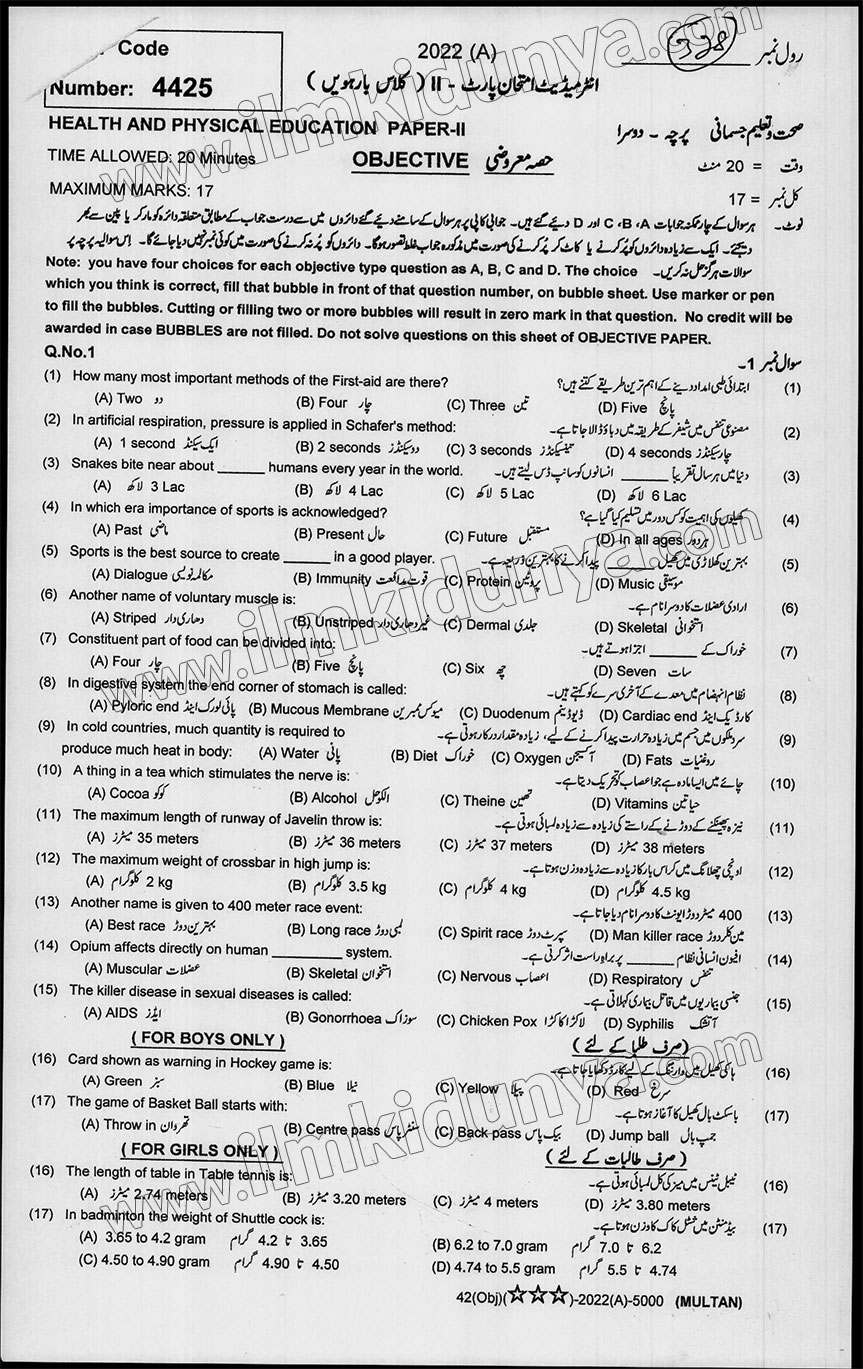 Code
Number: 4425
2022 (A)
رول نمبر 338
انٹرمیڈیٹ امتحان پارٹ - II (کلاس بارہویں)
HEALTH AND PHYSICAL EDUCATION PAPER-II
صحت و تعلیم جسمانی پرچہ - دوسرا
TIME ALLOWED: 20 Minutes
OBJECTIVE حصہ معروضی
وقت = 20 منٹ
MAXIMUM MARKS: 17
کل نمبر = 17
نوٹ - ہر سوال کے چار ممکنہ جوابات A، B، C اور D دیئے گئے ہیں۔ جوابی کاپی پر ہر سوال کے سامنے دیئے گئے دائروں میں سے درست جواب کے مطابق متعلقہ دائرہ کو مارکر یا پین سے بھر
دیجئے۔ ایک سے زیادہ دائروں کو پُر کرنے یا کاٹ کر پُر کرنے کی صورت میں مذکورہ جواب غلط تصور ہوگا۔ دائروں کو پُر نہ کرنے کی صورت میں کوئی نمبر نہیں دیا جائے گا۔ اس سوالیہ پرچہ پر
سوالات ہرگز حل نہ کریں۔
Note: you have four choices for each objective type question as A, B, C and D. The choice
which you think is correct, fill that bubble in front of that question number, on bubble sheet. Use marker or pen
to fill the bubbles. Cutting or filling two or more bubbles will result in zero mark in that question. No credit will be
awarded in case BUBBLES are not filled. Do not solve questions on this sheet of OBJECTIVE PAPER.
Q.No.1 سوال نمبر 1-
(1) How many most important methods of the First-aid are there? ابتدائی طبی امداد دینے کے اہم ترین طریقے کتنے ہیں؟ (1)
(A) Two دو (B) Four چار (C) Three تین (D) Five پانچ
(2) In artificial respiration, pressure is applied in Schafer's method: مصنوعی تنفس میں شیفر کے طریقہ میں دباؤ ڈالا جاتا ہے۔ (2)
(A) 1 second ایک سیکنڈ (B) 2 seconds دو سیکنڈز (C) 3 seconds تین سیکنڈز (D) 4 seconds چار سیکنڈز
(3) Snakes bite near about ______ humans every year in the world. دنیا میں ہر سال تقریباً ______ انسانوں کو سانپ ڈس لیتے ہیں۔ (3)
(A) لاکھ 3 Lac (B) لاکھ 4 Lac (C) لاکھ 5 Lac (D) لاکھ 6 Lac
(4) In which era importance of sports is acknowledged? کھیلوں کی اہمیت کو کس دور میں تسلیم کیا گیا ہے؟ (4)
(A) Past ماضی (B) Present حال (C) Future مستقبل (D) In all ages ہر دور
(5) Sports is the best source to create ______ in a good player. بہترین کھلاڑی میں کھیل ______ پیدا کرنے کا بہترین ذریعہ ہے۔ (5)
(A) Dialogue مکالمہ نویسی (B) Immunity قوت مدافعت (C) Protein پروٹین (D) Music موسیقی
(6) Another name of voluntary muscle is: ارادی عضلات کا دوسرا نام ہے۔ (6)
(A) Striped دھاری دار (B) Unstriped غیر دھاری دار (C) Dermal جلدی (D) Skeletal استخوانی
(7) Constituent part of food can be divided into: خوراک کے ______ اجزا ہوتے ہیں۔ (7)
(A) Four چار (B) Five پانچ (C) Six چھ (D) Seven سات
(8) In digestive system the end corner of stomach is called: نظام انہضام میں معدے کے آخری سرے کو کہتے ہیں۔ (8)
(A) Pyloric end پائی لورک اینڈ (B) Mucous Membrane میوکس ممبرین (C) Duodenum ڈیوڈینم (D) Cardiac end کارڈیک اینڈ
(9) In cold countries, much quantity is required to سرد ملکوں میں جسم میں زیادہ حرارت پیدا کرنے کے لیے، زیادہ مقدار درکار ہوتی ہے۔ (9)
produce much heat in body: (A) Water پانی (B) Diet خوراک (C) Oxygen آکسیجن (D) Fats روغنیات
(10) A thing in a tea which stimulates the nerve is: چائے میں ایسا مادہ ہے جو اعصاب کو تحریک دیتا ہے۔ (10)
(A) Cocoa کوکو (B) Alcohol الکوحل (C) Theine تھین (D) Vitamins حیاتین
(11) The maximum length of runway of Javelin throw is: نیزہ پھینکنے کے دوڑنے کے راستے کی زیادہ سے زیادہ لمبائی ہوتی ہے۔ (11)
(A) میٹرز 35 meters (B) میٹرز 36 meters (C) میٹرز 37 meters (D) میٹرز 38 meters
(12) The maximum weight of crossbar in high jump is: اونچی چھلانگ میں کراس بار کا زیادہ سے زیادہ وزن ہوتا ہے۔ (12)
(A) کلوگرام 2 kg (B) کلوگرام 3.5 kg (C) کلوگرام 4 kg (D) کلوگرام 4.5 kg
(13) Another name is given to 400 meter race event: 400 میٹر دوڑ ایونٹ کا دوسرا نام دیا جاتا ہے۔ (13)
(A) Best race بہترین دوڑ (B) Long race لمبی دوڑ (C) Spirit race سپرٹ دوڑ (D) Man killer race مین کلر دوڑ
(14) Opium affects directly on human ______ system. افیون انسانی نظام ______ پر براہ راست اثر کرتی ہے۔ (14)
(A) Muscular عضلات (B) Skeletal استخوان (C) Nervous اعصاب (D) Respiratory تنفس
(15) The killer disease in sexual diseases is called: جنسی بیماریوں میں قاتل بیماری کہلاتی ہے۔ (15)
(A) AIDS ایڈز (B) Gonorrhoea سوزاک (C) Chicken Pox لاکڑا کاکڑا (D) Syphilis آتشک
( FOR BOYS ONLY ) (صرف طلبا کے لئے)
(16) Card shown as warning in Hockey game is: ہاکی کھیل میں وارننگ کے لیے کارڈ دکھایا جاتا ہے۔ (16)
(A) Green سبز (B) Blue نیلا (C) Yellow پیلا (D) Red سرخ
(17) The game of Basket Ball starts with: باسکٹ بال کھیل کا آغاز ہوتا ہے۔ (17)
(A) Throw in تھرو ان (B) Centre pass سنٹر پاس (C) Back pass بیک پاس (D) Jump ball جمپ بال
( FOR GIRLS ONLY ) (صرف طالبات کے لئے)
(16) The length of table in Table tennis is: ٹیبل ٹینس میں میز کی کل لمبائی ہوتی ہے۔ (16)
(A) میٹرز 2.74 meters (B) میٹرز 3.20 meters (C) میٹرز 4 meters (D) میٹرز 3.80 meters
(17) In badminton the weight of Shuttle cock is: بیڈمنٹن میں شٹل کاک کا وزن ہوتا ہے۔ (17)
(A) 3.65 to 4.2 gram گرام 4.2 تا 3.65 (B) 6.2 to 7.0 gram گرام 7.0 تا 6.2
(C) 4.50 to 4.90 gram گرام 4.90 تا 4.50 (D) 4.74 to 5.5 gram گرام 5.5 تا 4.74
42(Obj)(☆☆☆)-2022(A)-5000 (MULTAN)
www.ilmkidunya.com
www.ilmkidunya.com
www.ilmkidunya.com